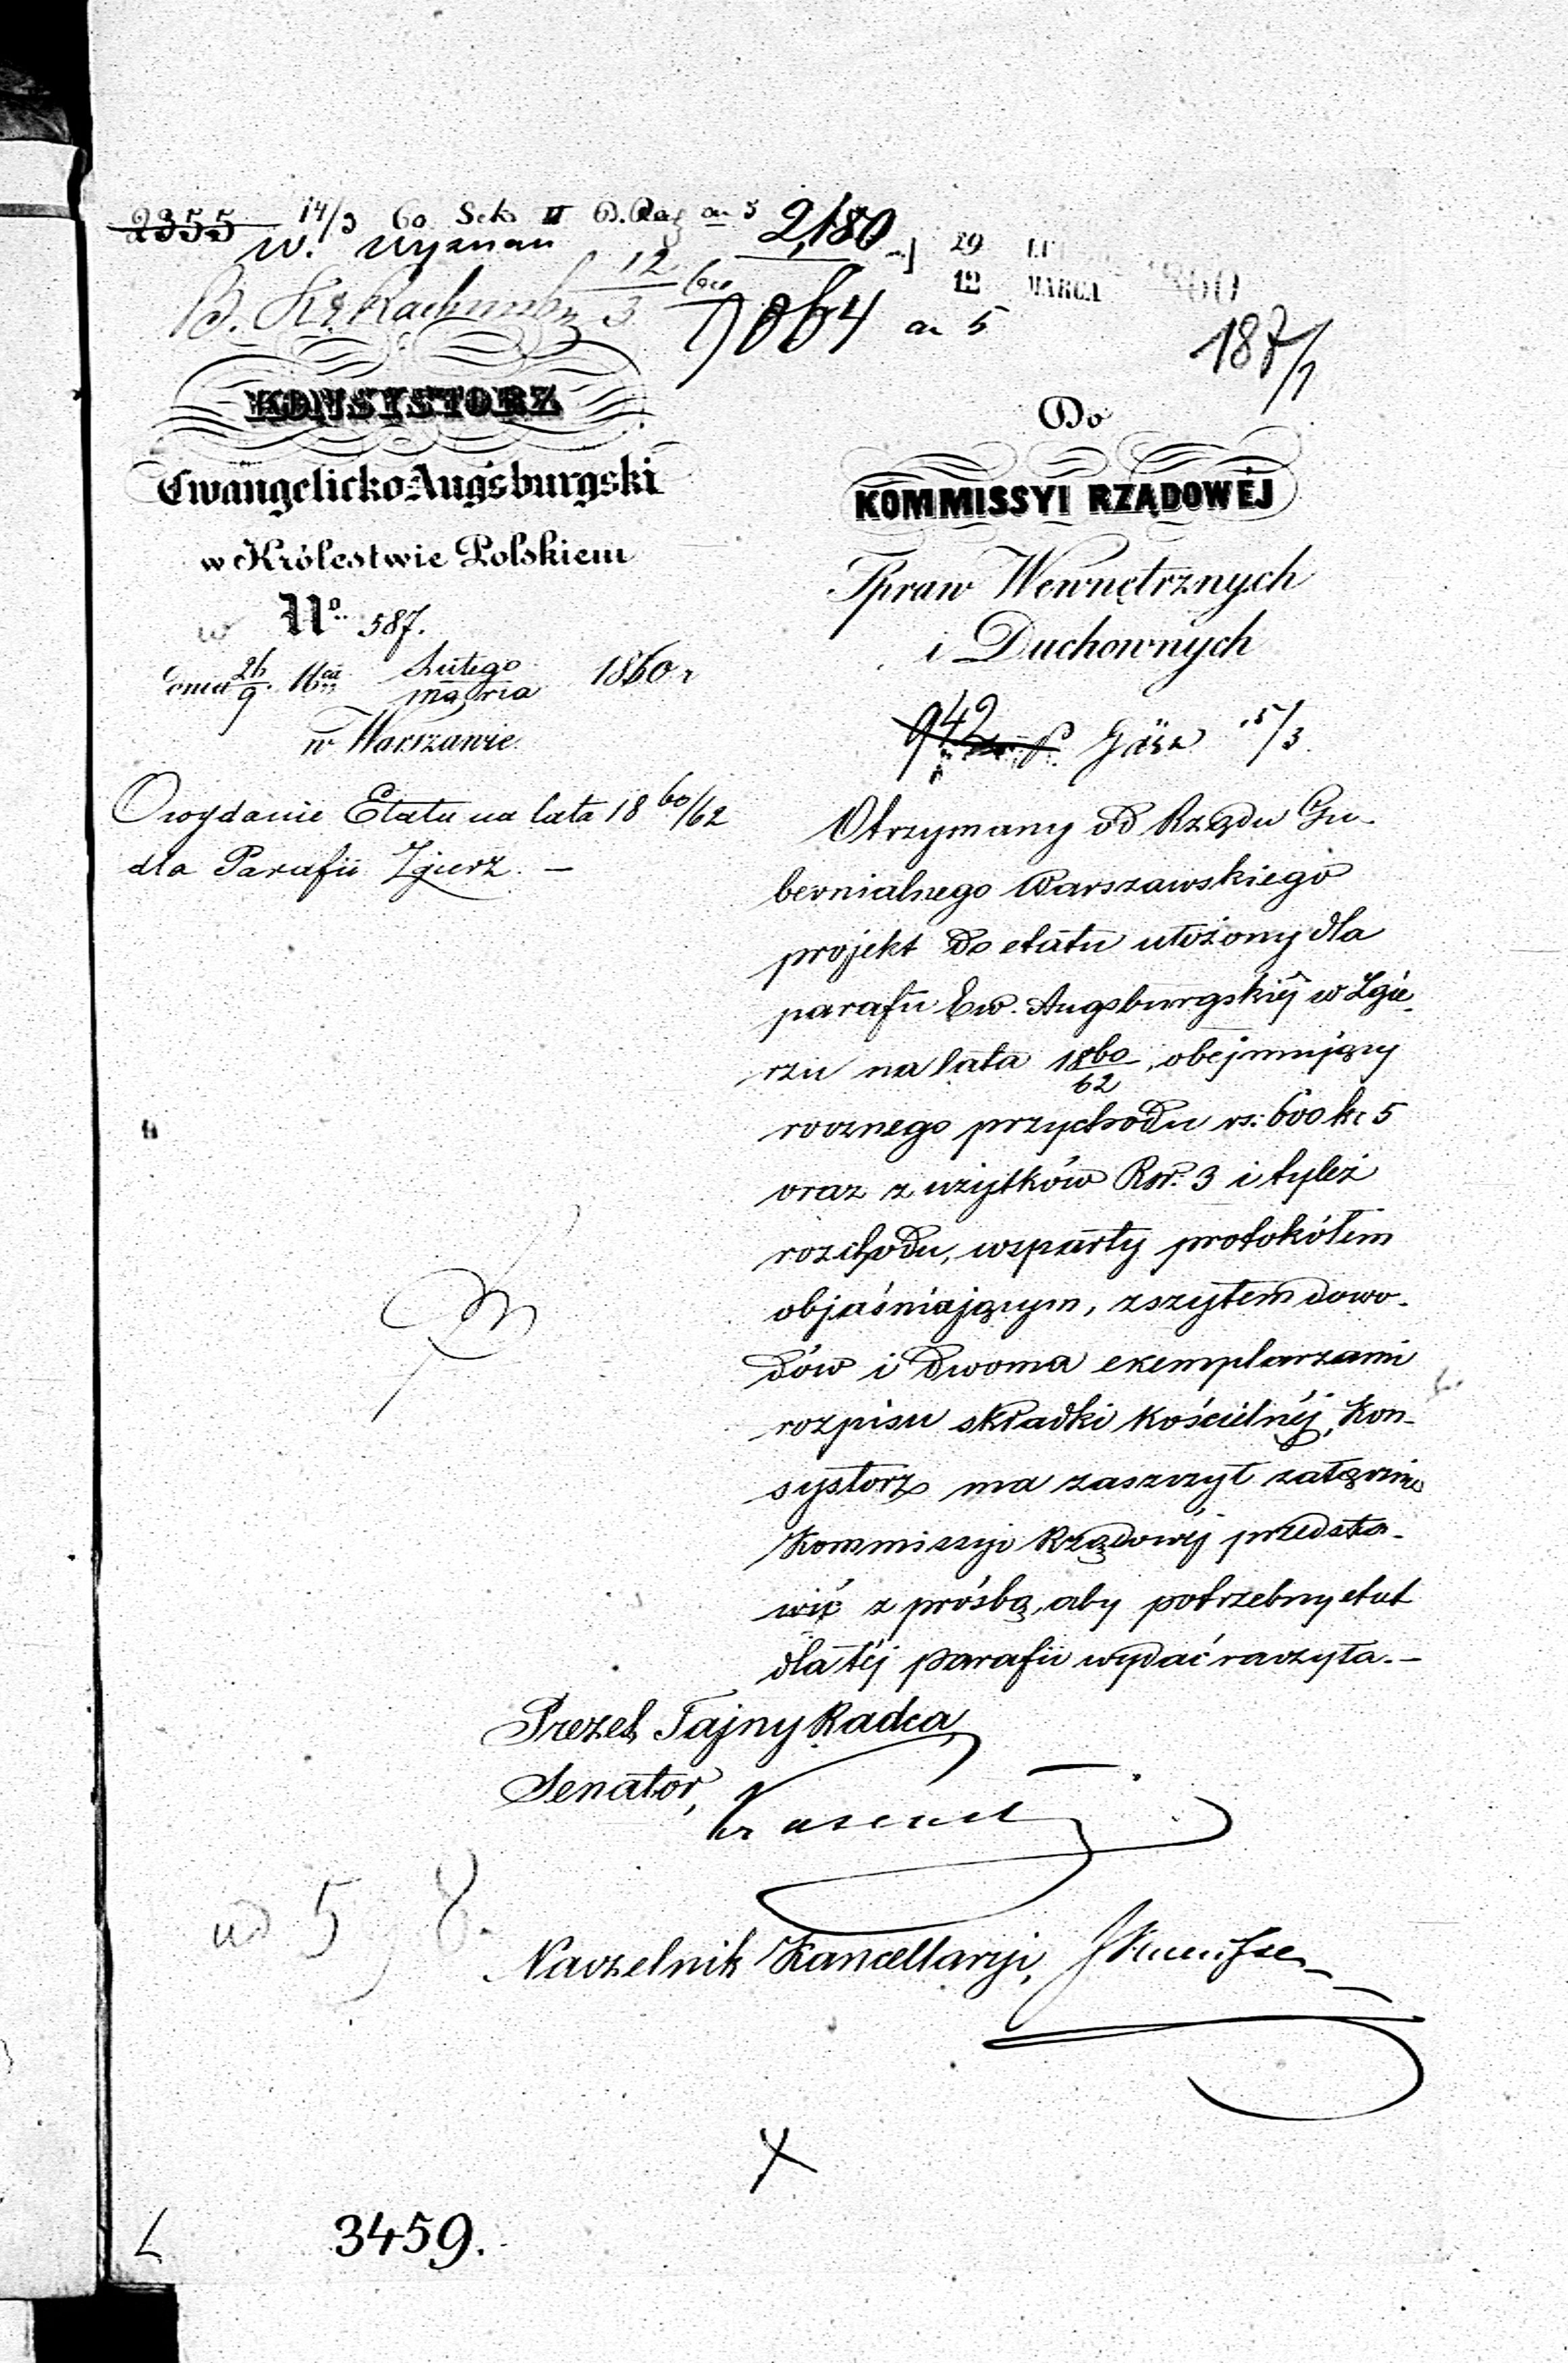 2355 14/3 60 Sek II an 5 2,180
W. Wyznan 29
12/3 60 12 MARCA 1860
9064 an 5
187/1
KONSYSTORZ
Ewangelicko-Augsburgski
w Królestwie Polskiem
w No. 587.
dnia 26/9 Lutego/marca 1860 r
w Warszawie
O wydanie Etatu na lata 18 60/62
dla Parafii Zgierz. —
Do
KOMMISSYI RZĄDOWÉJ
Spraw Wewnętrznych
i Duchownych
942 15/3
Otrzymany od Rządu Gu-
bernialnego Warszawskiego
projekt do etatu ułożony dla
parafii Ew. Augsburgskiéj w Zgie-
rzu na lata 1860/62, obejmujący
rocznego przychodu rs: 600 k: 5
oraz z użytków Rsr. 3 i tyleż
rozchodu, wsparty protokółem
objaśniającym, zszytem dowo-
dów i dwoma exemplarzami
rozpisu składki kościelnéj, Kon-
systorz ma zaszczyt załącznie
Kommissyi Rządowéj przedsta-
wić z prośbą, aby potrzebny etat
dla téj parafii wydać raczyła. —
Prezes Tajny Radca
Senator,
Naczelnik Kancellaryi,
ad 598.
3459.